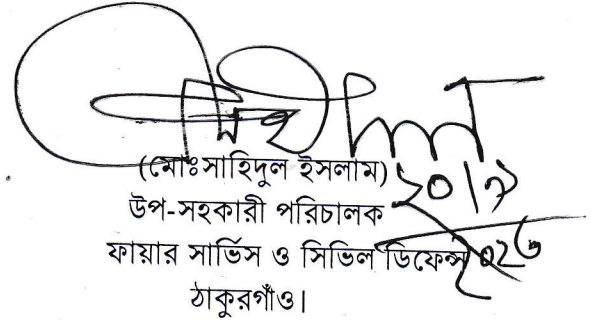 (মোঃসাহিদুল ইসলাম)
উপ-সহকারী পরিচালক
ফায়ার সার্ভিস ও সিভিল ডিফেন্স
ঠাকুরগাঁও।